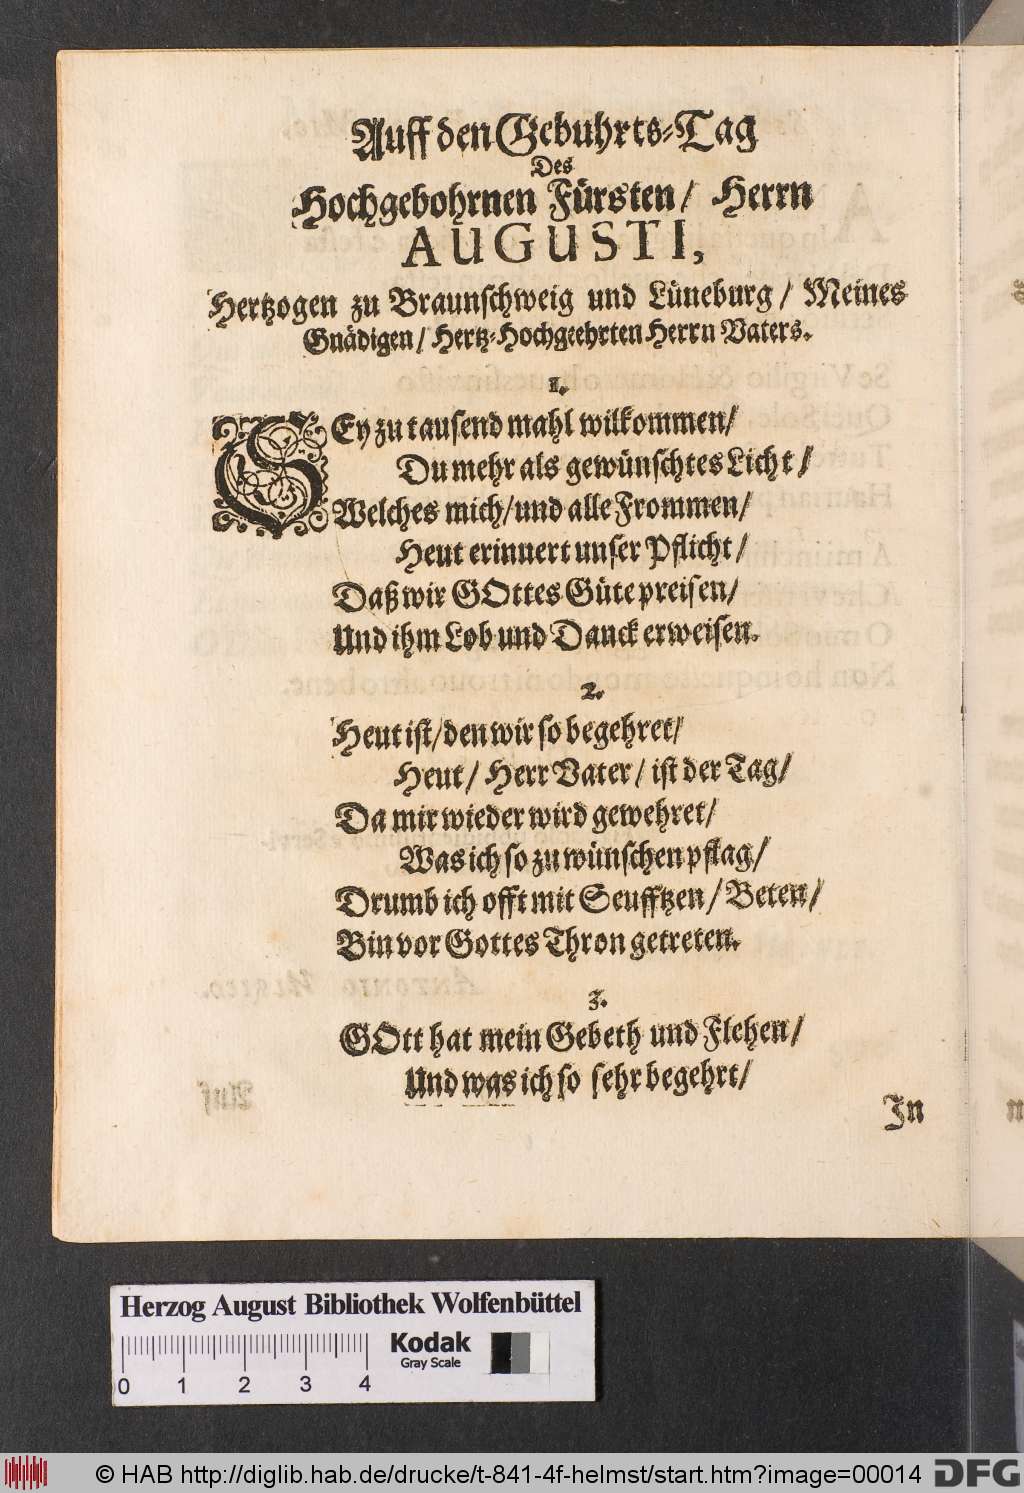 Auff den Gebuhrts-Tag
Des
Hochgebohrnen Fürsten/ Herrn
AUGUSTI,
Hertzogen zu Braunschweig und Lüneburg/ Meines
Gnädigen/ Hertz-Hochgeehrten Herrn Vaters.
1.
SEy zu tausend mahl wilkommen/
Du mehr als gewünschtes Licht/
Welches mich/ und alle Frommen/
Heut erinnert unser Pflicht/
Daß wir GOttes Güte preisen/
Und ihm Lob und Danck erweisen.
2.
Heut ist/ den wir so begehret/
Heut/ Herr Vater/ ist der Tag/
Da mir wieder wird gewehret/
Was ich so zu wünschen pflag/
Drumb ich offt mit Seufftzen/ Beten/
Bin vor Gottes Thron getreten.
3.
GOtt hat mein Gebeth und Flehen/
Und was ich so sehr begehrt/
In
Herzog August Bibliothek Wolfenbüttel
Kodak
Gray Scale
0 1 2 3 4
© HAB http://diglib.hab.de/drucke/t-841-4f-helmst/start.htm?image=00014
DFG